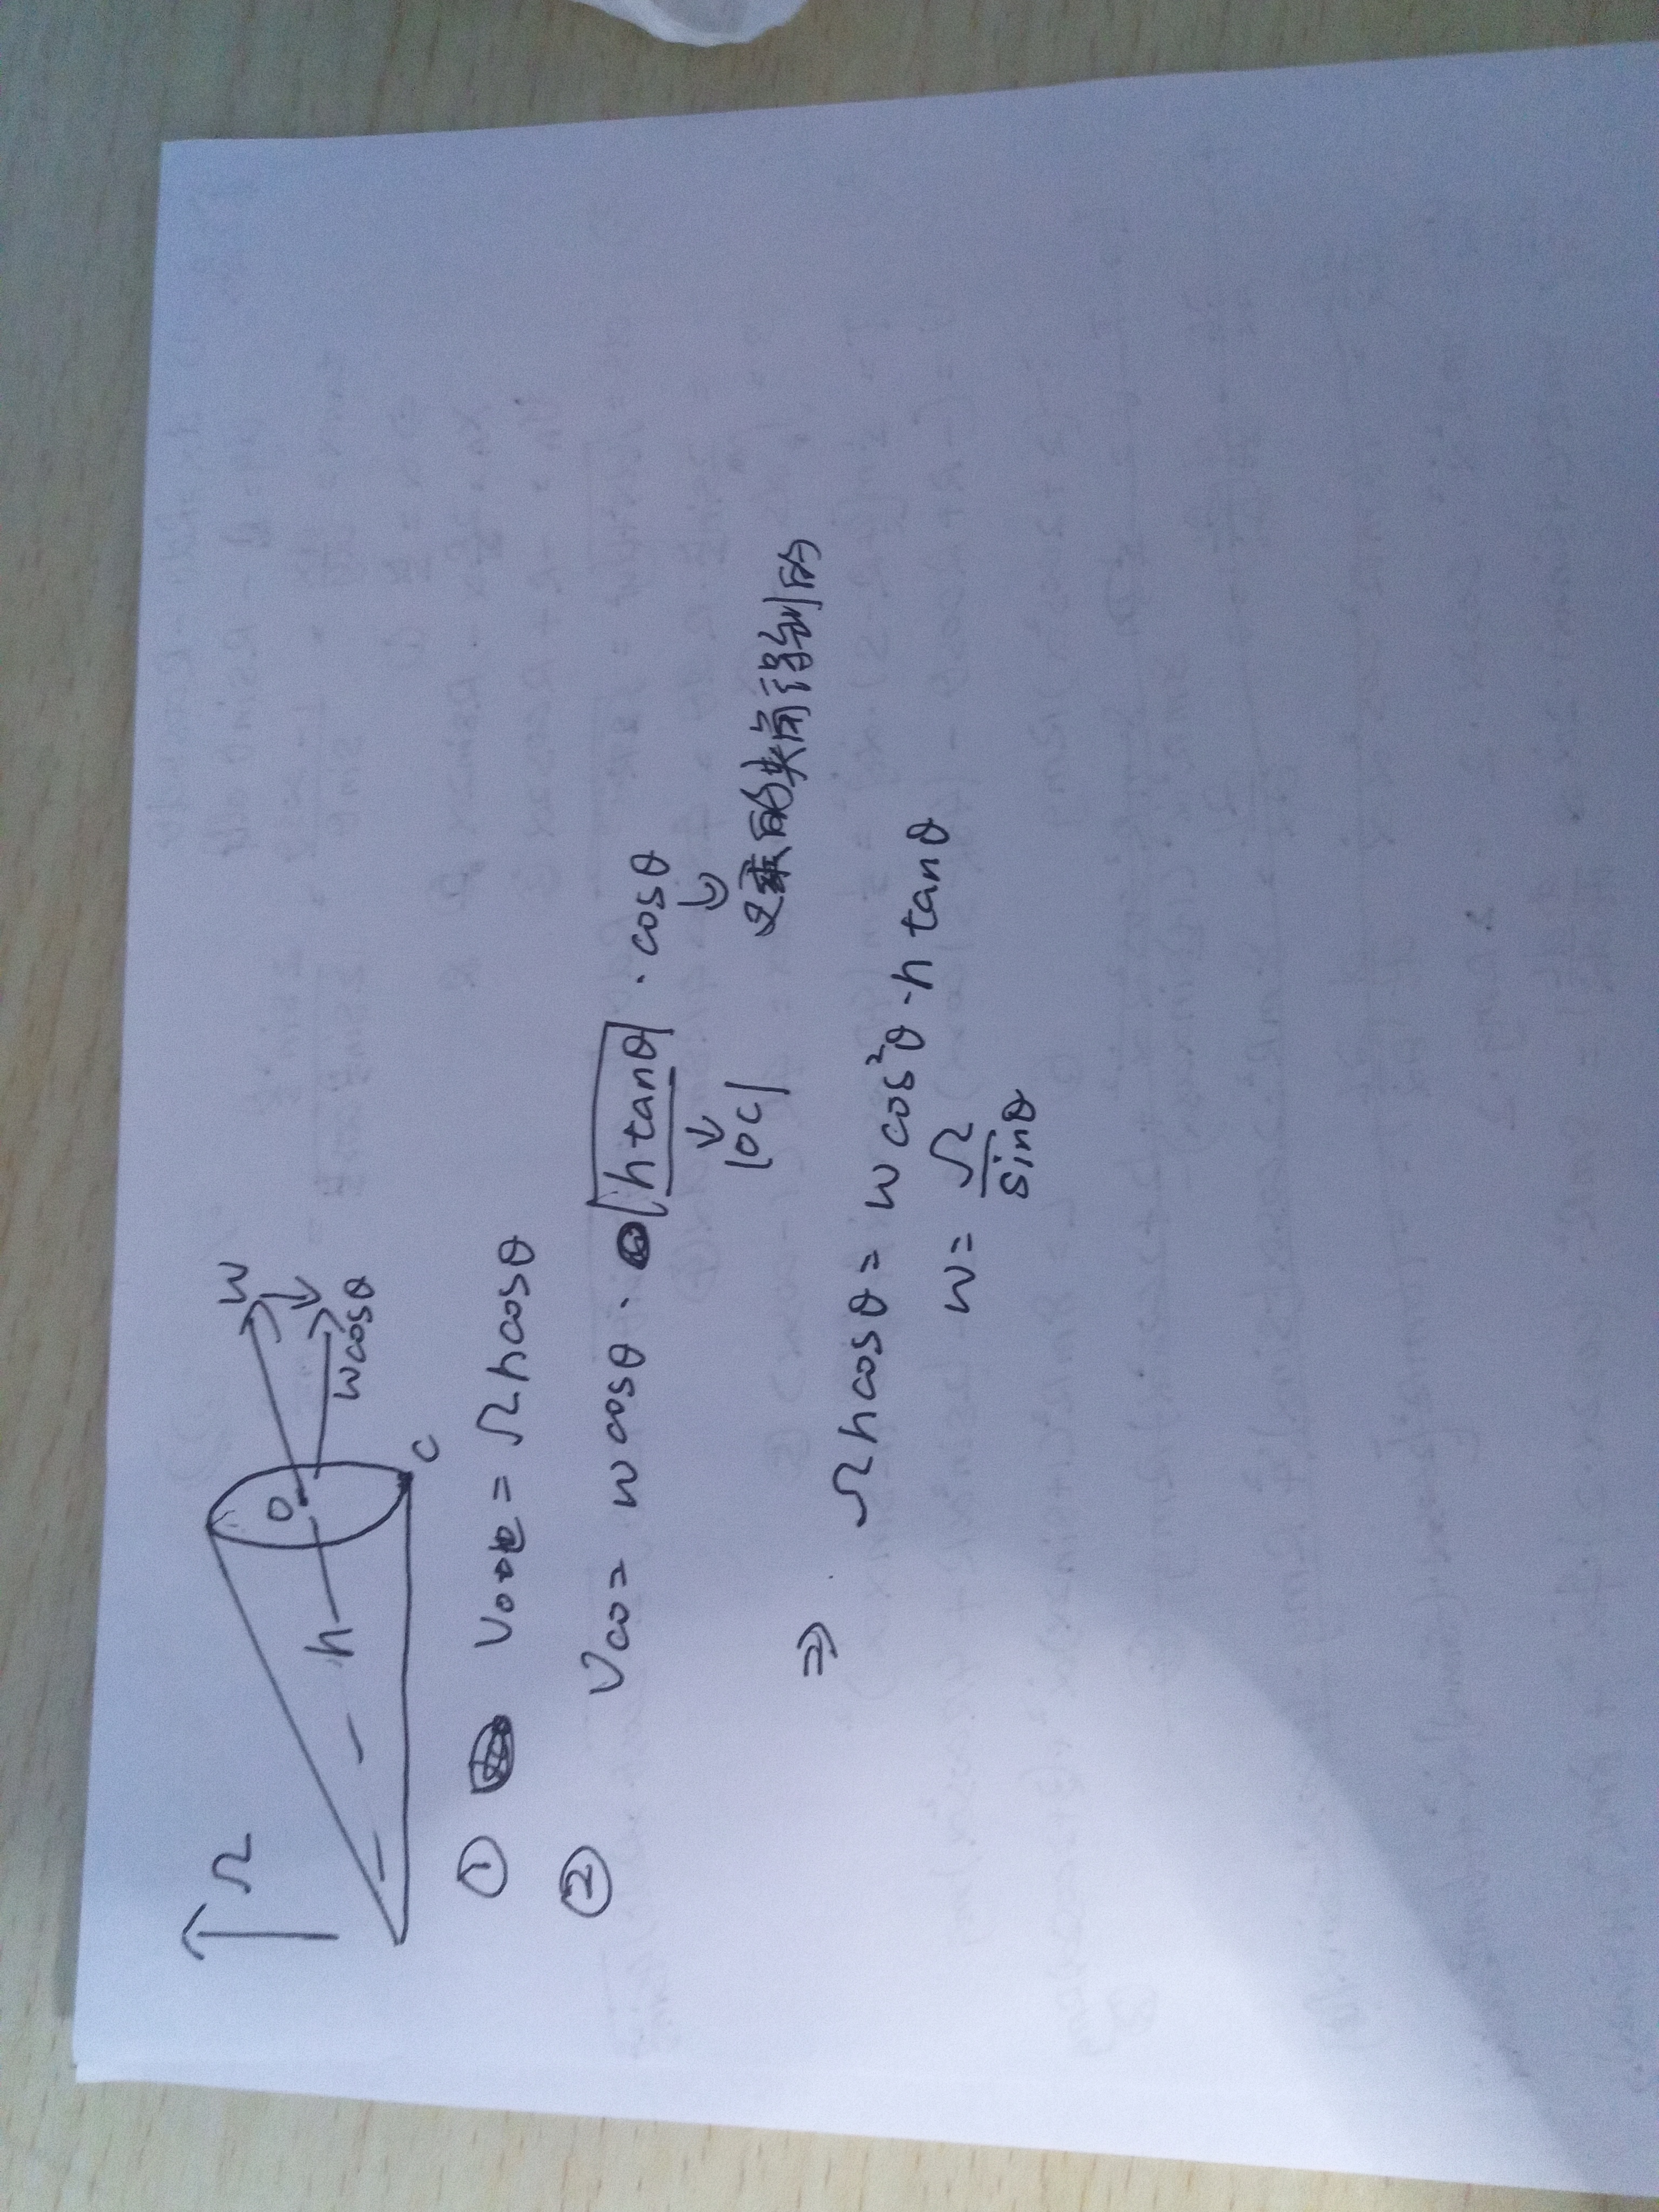 Ω
h
O
C
w
wcosθ
① = Ωhcosθ
② Vco = w cosθ · h tanθ · cosθ
|OC|
叉乘的夹角得到的
⇒ Ωhcosθ = w cos²θ · h tanθ
w = Ω/sinθ